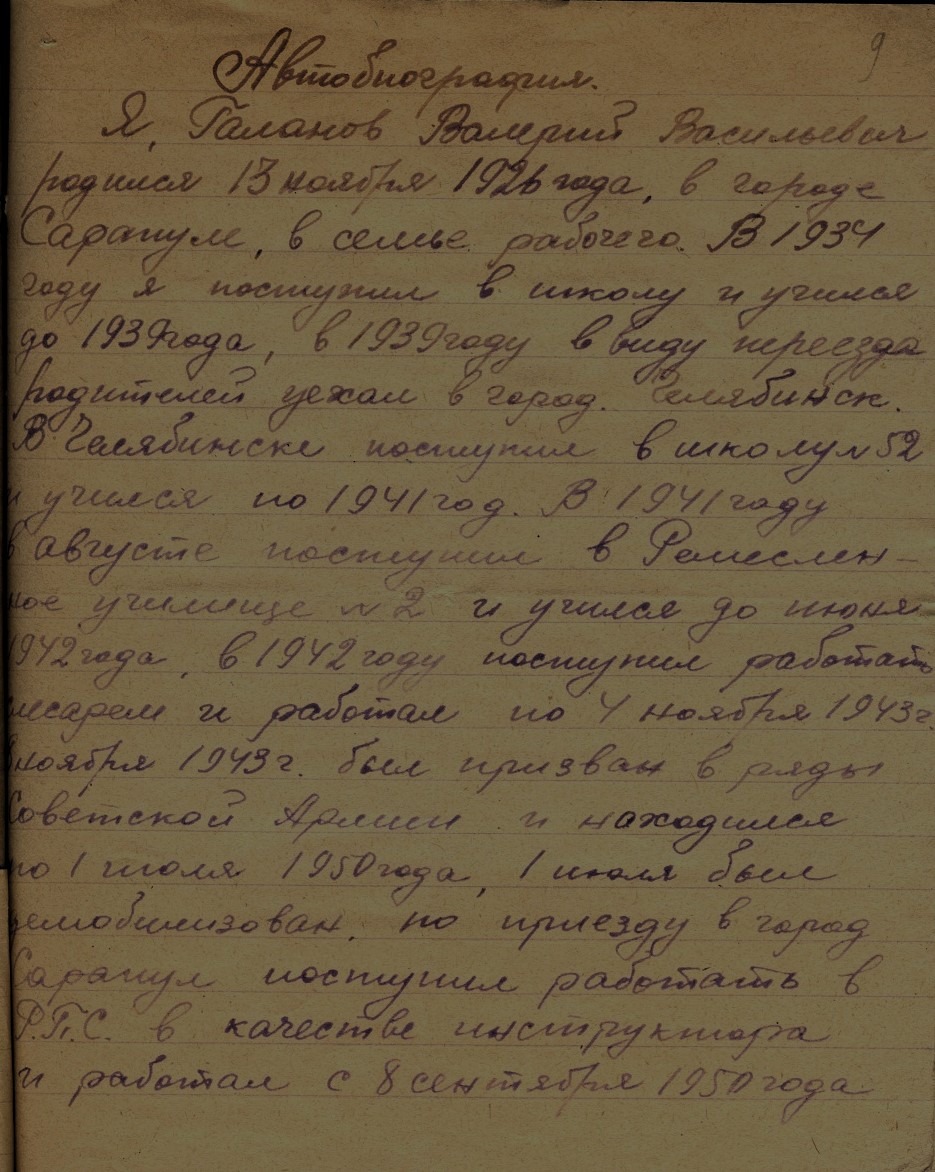 9
Автобиография.
Я, Галанов Валерий Васильевич
родился 13 ноября 1926 года, в городе
Сарапуле, в семье рабочего. В 1934
году я поступил в школу и учился
до 1939 года, в 1939 году ввиду переезда
родителей уехал в город. Челябинск.
В Челябинске поступил в школу №52
и учился по 1941 год. В 1941 году
в августе поступил в Ремеслен-
ное училище №2 и учился до июня
1942 года, в 1942 году поступил работать
слесарем и работал по 4 ноября 1943 г.
ноября 1943 г. был призван в ряды
Советской Армии и находился
по 1 июля 1950 года, 1 июля был
демобилизован, по приезду в город
Сарапул поступил работать в
Р.П.С. в качестве инструктора
и работал с 8 сентября 1950 года